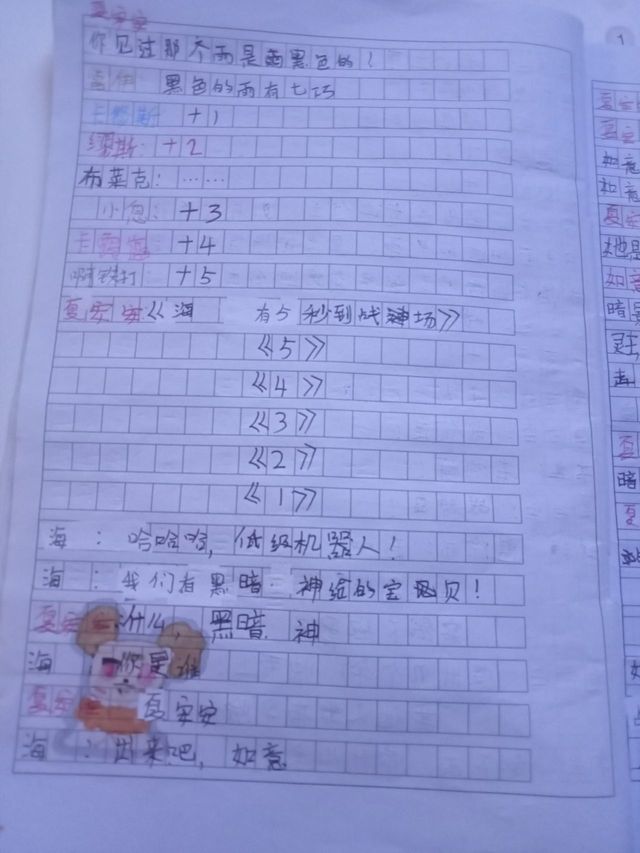 夏安安
你见过那个雨是黑色的！
黑色的雨有七巧
卡修斯 +1
缪斯：+2
布莱克：……
小息：+3
卡 +4
啊铁打 +5
夏安安《海 有5秒到战神场》
《5》
《4》
《3》
《2》
《1》
海：哈哈哈，低级机器人！
海：我们有黑暗神给的宝贝！
夏安安：什么，黑暗神
海 你是谁
夏安安 夏安安
海：出来吧，如意
1
夏安
夏安
如意
如意
夏安
她是
如意
暗
夏
暗
夏